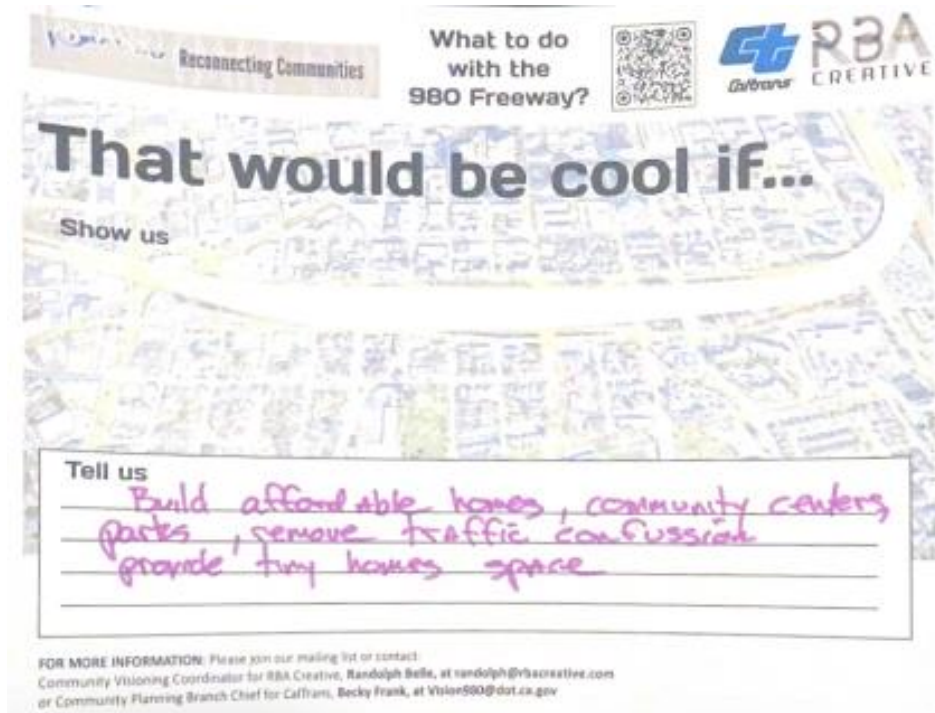 Reconnecting Communities
What to do
with the
980 Freeway?
Caltrans
RBA
CREATIVE
That would be cool if...
Show us
Tell us
Build affordable homes, community centers,
parks, remove traffic confussion
provide tiny homes space
FOR MORE INFORMATION: Please join our mailing list or contact:
Community Visioning Coordinator for RBA Creative, Randolph Belle, at randolph@rbacreative.com
or Community Planning Branch Chief for Caltrans, Becky Frank, at Vision980@dot.ca.gov